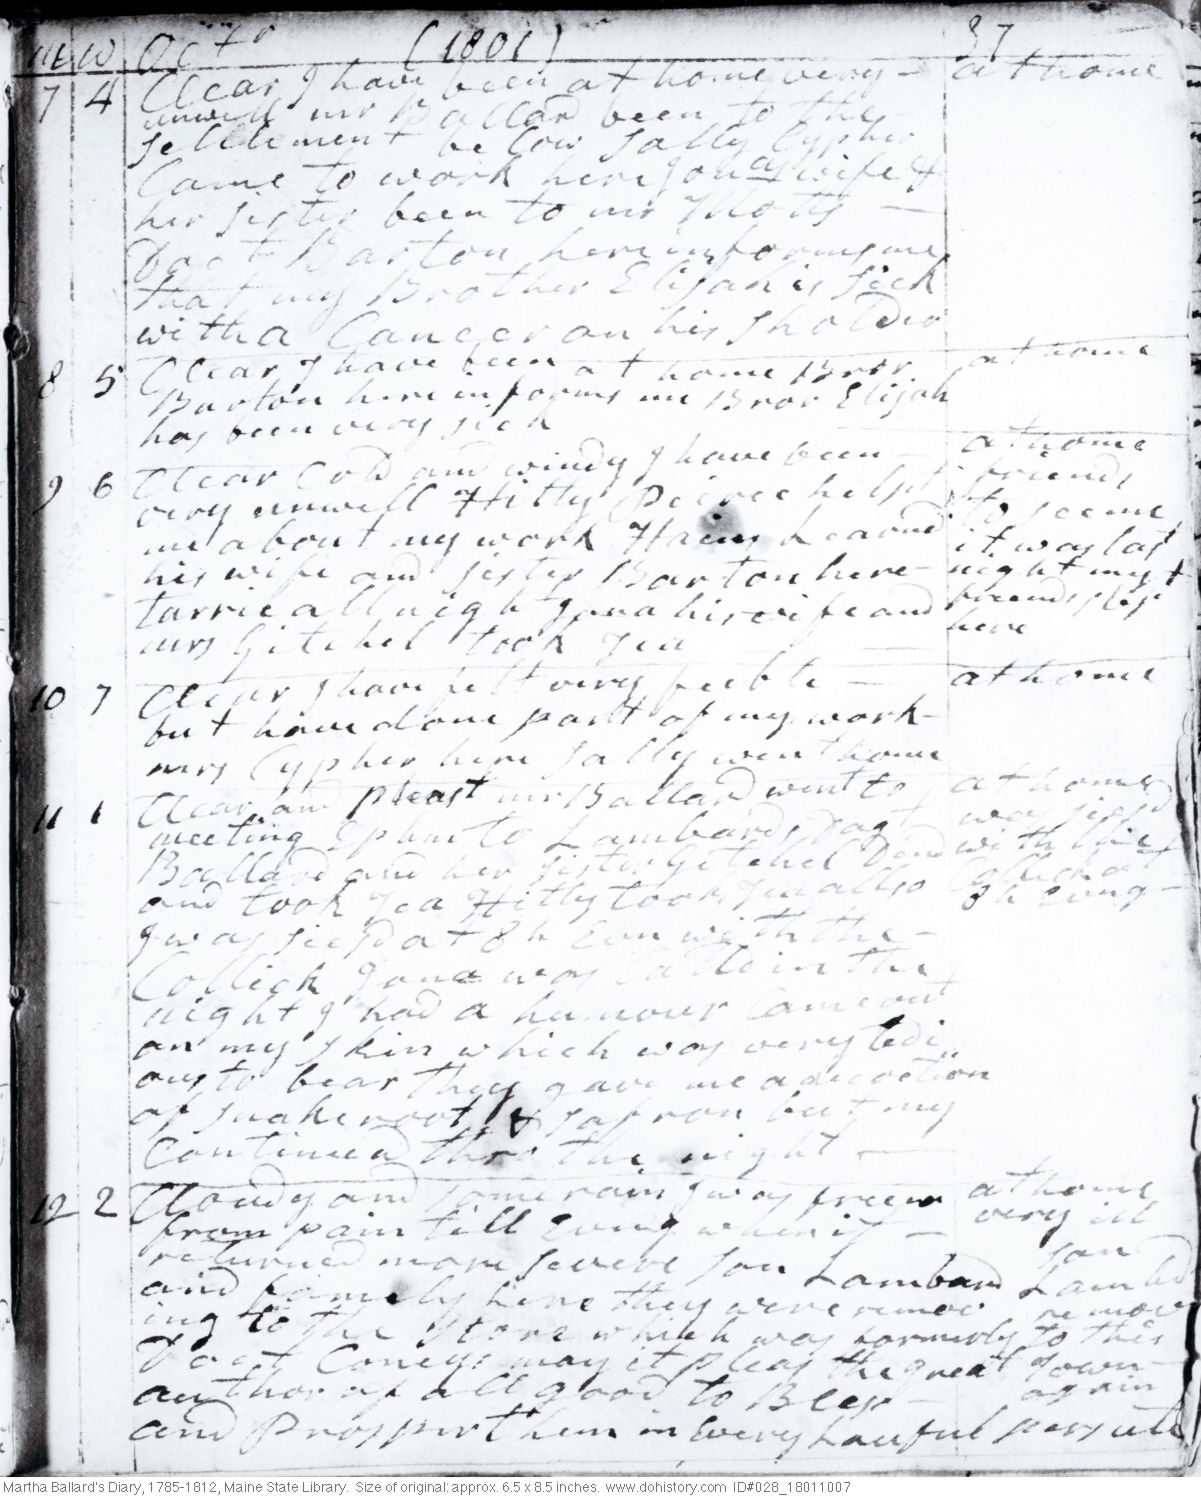 M W Octr (1801) 37
7 4 Clear I have been at home very - at home
unwell mr Ballard been to the
settlement below Sally Cypher
Came to work here Jonas wife &
her sister been to mr Motts -
Doct Barton here informs me
that my Brother Elijah is sick
with a Cancer on his Sholder
8 5 Clear I have been at home Bror at home
Barton here informs me Bror Elijah
has been very sick
9 6 Clear Cold and windy I have been - at home
very unwell Hitty Peirce helpt friends
me about my work Leaond to see me
his wife and sister Barton here - it was last
tarrie all night Jona his wife and night my
mrs Gitchel took Tea friends slept
here
10 7 Clear I have felt very feeble - at home
but have done part of my work -
mrs Cypher here Sally went home
11 1 Clear and pleast mr Ballard went to at home
meeting Ephm to Lambards Dagt was siesd
Ballard and her sister Gitchel Dind with the
and took Tea Hitty took Tea allso Collick at
8 h Evng -
I was siesd at 8 h Evn with the -
Collick Jona was Calld in the
night I had a humour Came out
on my skin which was very tedi
ous to bear they gave me a decoction
of snakeroot & safron but my
Continued thro the night -
12 2 Cloudy and some rain I was free at home
from pain till Evng when it - very ill
returned more severe son Lambard son
and family here they were remov Lambd
ing to the Store which was formerly remov
Doct Conys may it pleas the great to this
Town
author of all good to Bless - again
and Prosper them in Every Lawful persute
Martha Ballard's Diary, 1785-1812, Maine State Library. Size of original: approx. 6.5 x 8.5 inches. www.dohistory.com ID#028_18011007